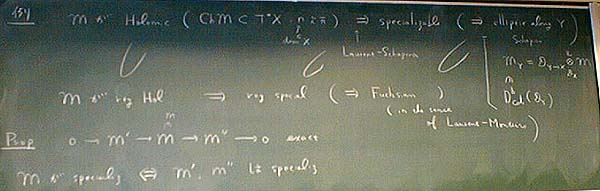 𝓜 が Holonomic ( Ch 𝓜 ⊂ T*X , n 次元 ) ⇒ specializable ( ⇒ elliptic along Y )
dim X
Laurent-Schapira
Schapira
𝓜_Y = 𝒟_{Y→X} ⊗ 𝓜
𝓜 が reg Hol ⇒ reg special ( ⇒ Fuchsian )
( in the sense
of Laurent-Monteiro )
Prop 0 → 𝓜' → 𝓜 → 𝓜'' → 0 exact
𝓜 が specializ ⇔ 𝓜', 𝓜'' は specializ